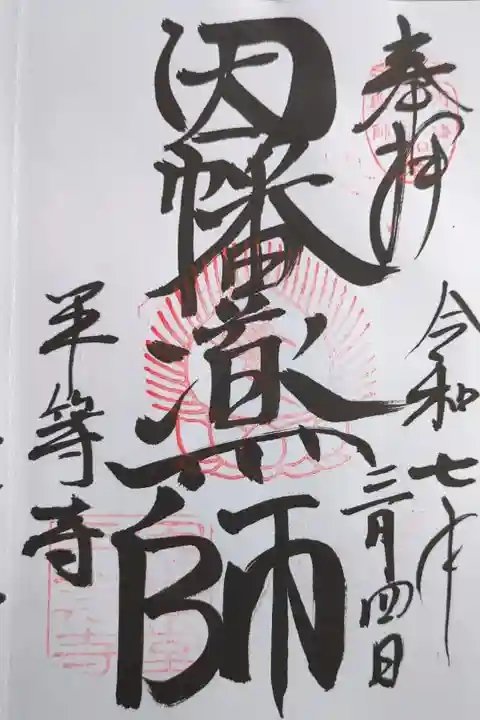 奉拝
令和七年
三月四日
因幡薬師
平等寺